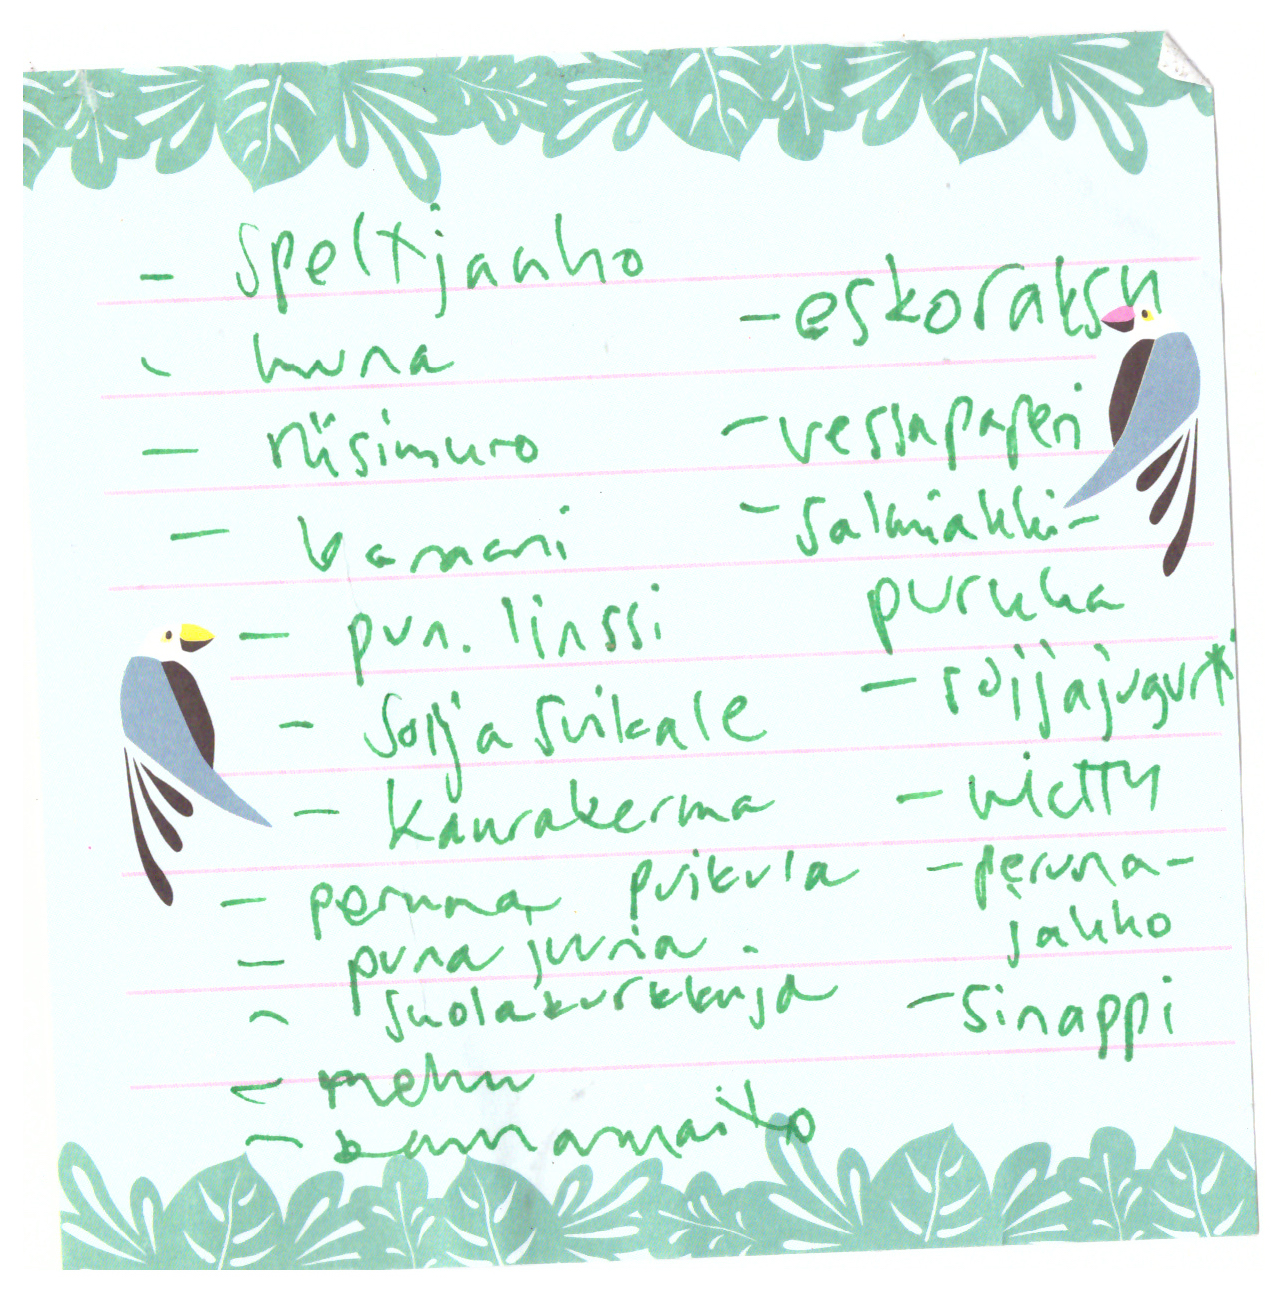 - speltjauho
- muna
- riisimuro
- banaani
- pun. linssi
- soijasuikale
- kaurakerma
- peruna, puikula
- punajuuria.
- suolakurkkuja
- mehu
- kauramaito
- eskoraksu
- vessapaperi
- salmiakki-
purkka
- soijajugurtti
- peruna-
jauho
- sinappi